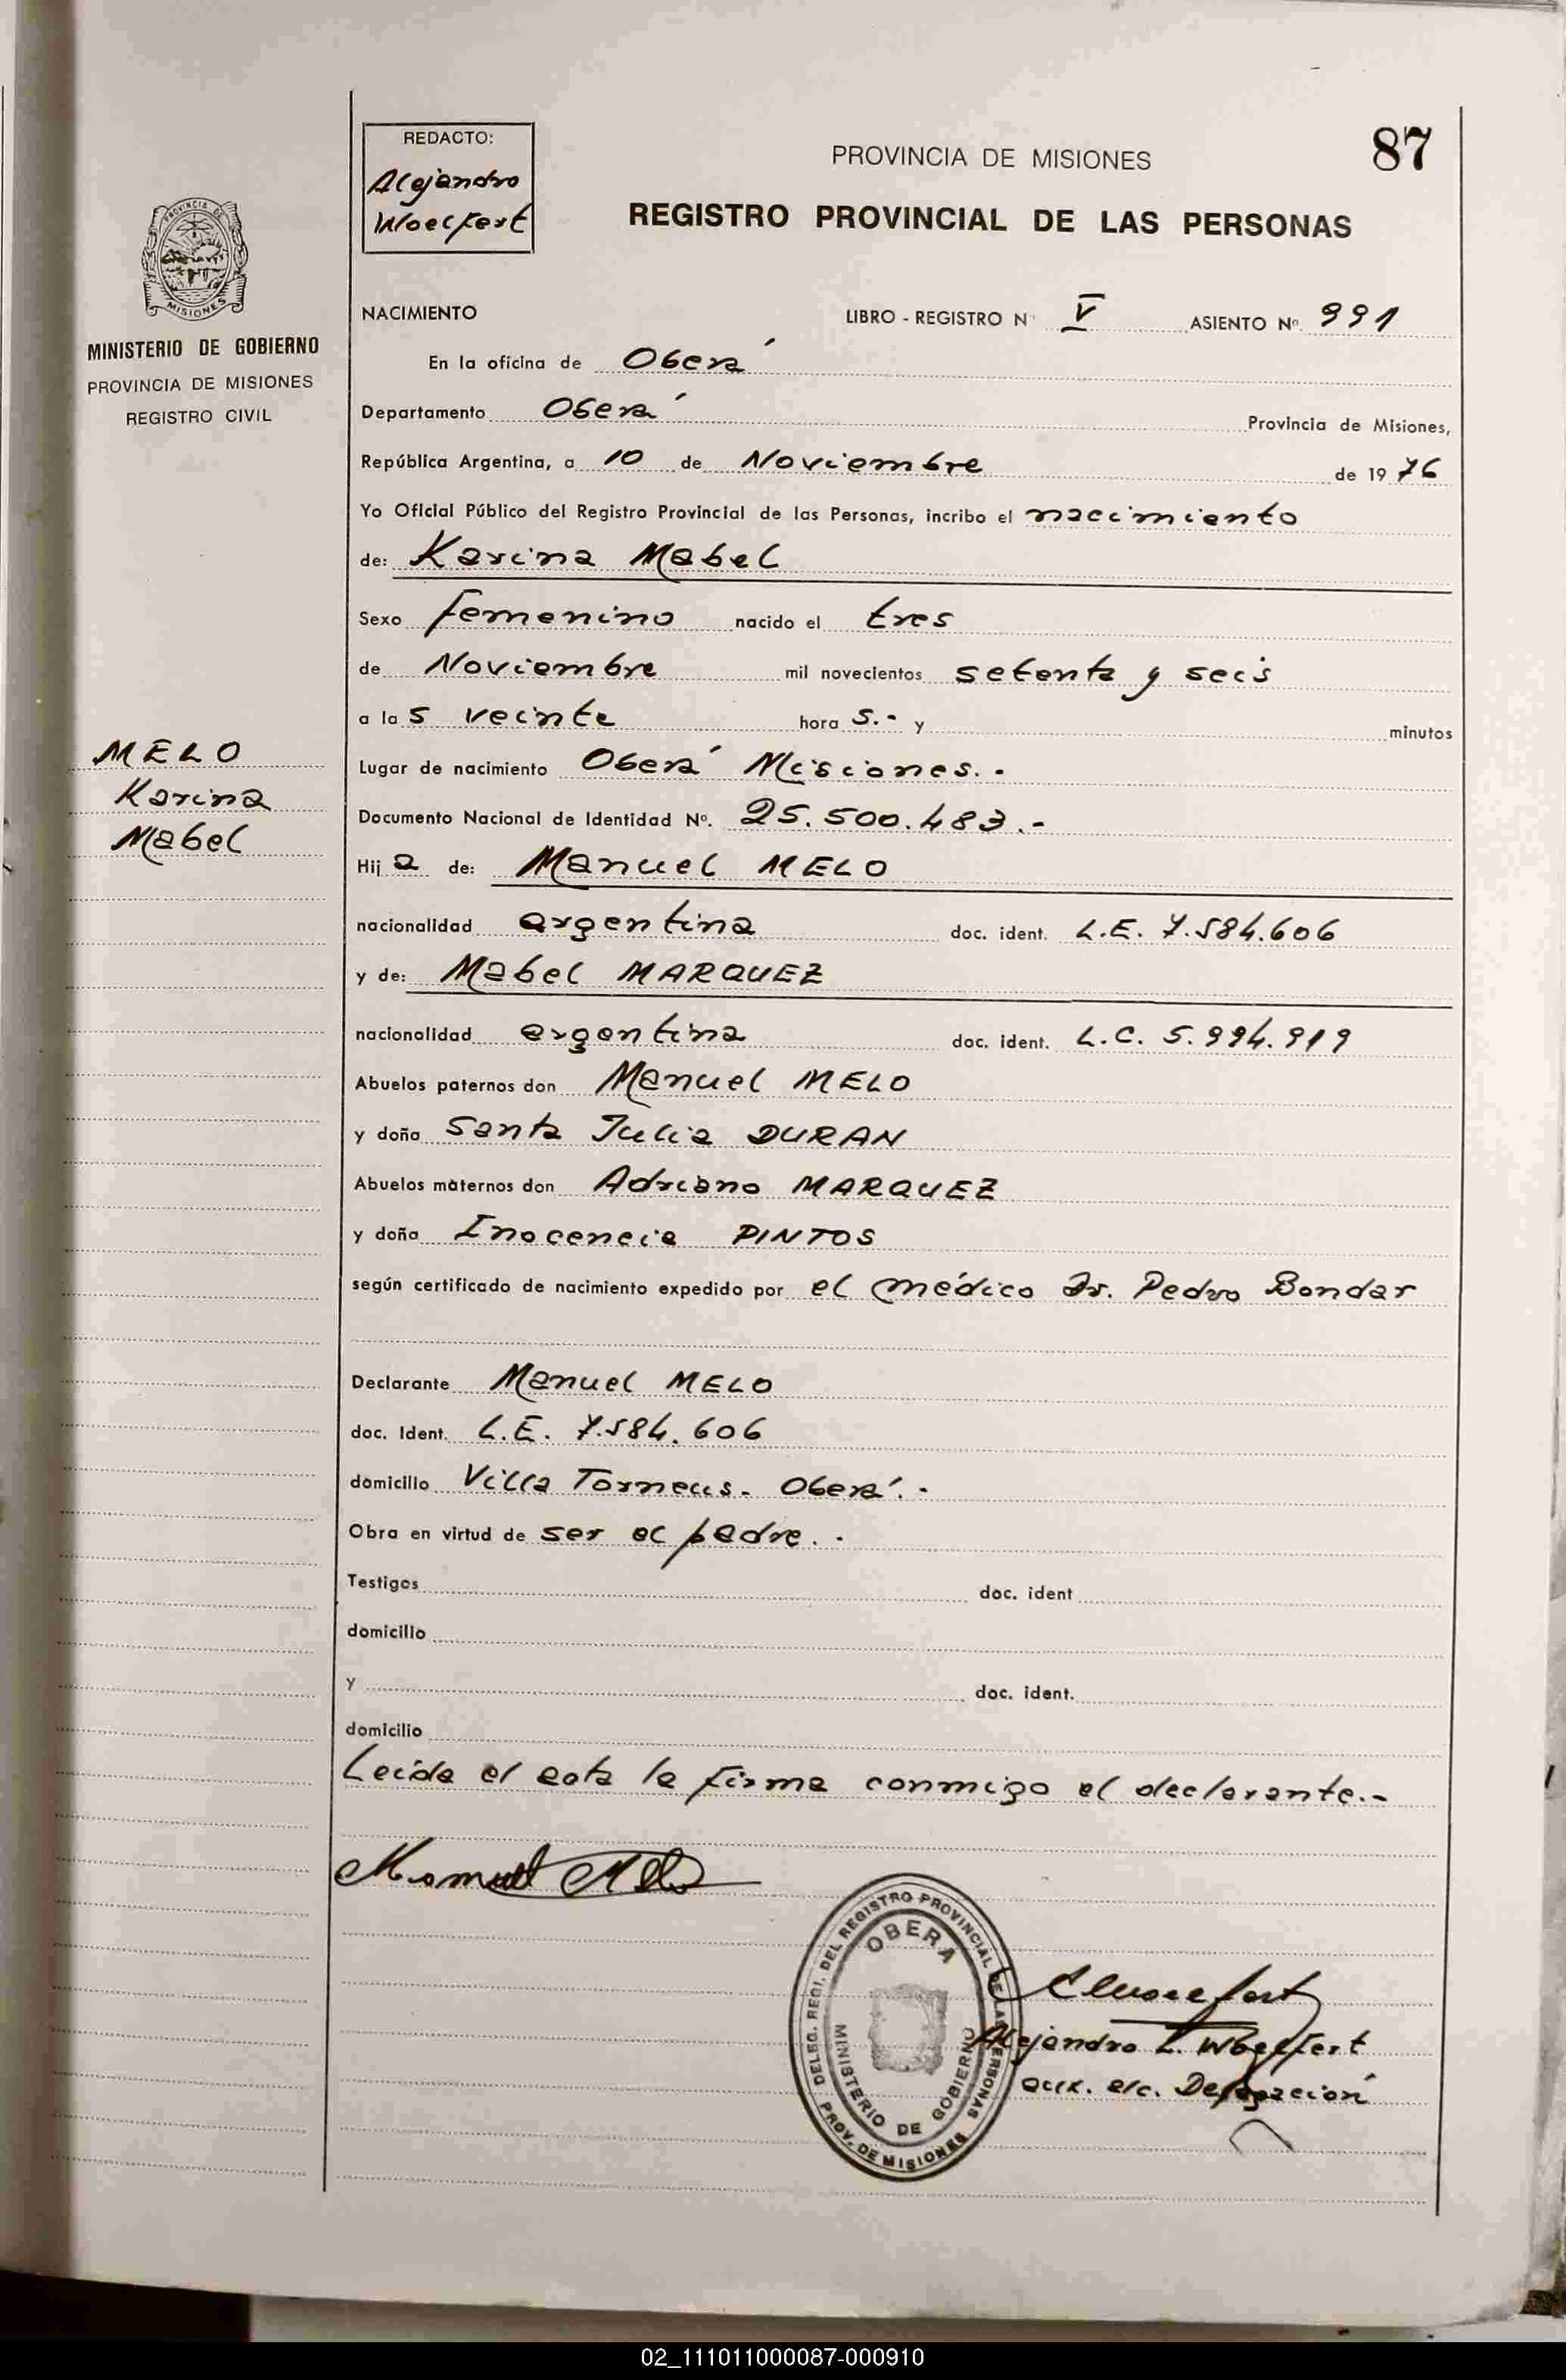 87
REDACTO:
Alejandro
Woelfert
PROVINCIA DE MISIONES
REGISTRO PROVINCIAL DE LAS PERSONAS
PROVINCIA DE
MISIONES
MINISTERIO DE GOBIERNO
PROVINCIA DE MISIONES
REGISTRO CIVIL
NACIMIENTO LIBRO - REGISTRO Nº V ASIENTO Nº 991
En la oficina de Oberá
Departamento Oberá Provincia de Misiones,
República Argentina, a 10 de Noviembre de 1976
Yo Oficial Público del Registro Provincial de las Personas, incribo el nacimiento
de: Karina Mabel
Sexo femenino nacido el tres
de Noviembre mil novecientos setenta y seis
a las veinte horas.- y minutos
MELO
Karina
Mabel
Lugar de nacimiento Oberá Misiones.-
Documento Nacional de Identidad Nº. 25.500.483.-
Hija de: Manuel MELO
nacionalidad argentina doc. ident. L.E. 7.584.606
y de: Mabel MARQUEZ
nacionalidad argentina doc. ident. L.C. 5.994.919
Abuelos paternos don Manuel MELO
y doña Santa Julia DURAN
Abuelos maternos don Adriano MARQUEZ
y doña Inocencia PINTOS
según certificado de nacimiento expedido por el médico Dr. Pedro Bondar
Declarante Manuel MELO
doc. Ident. L.E. 7.584.606
domicilio Villa Torneus. Oberá.-
Obra en virtud de ser el padre.-
Testigos doc. ident
domicilio
y doc. ident.
domicilio
Leída el acta la firma conmigo el declarante.-
Manuel Melo
DELEG. REGI. DEL REGISTRO PROVINCIAL DE LAS PERSONAS
OBERA
MINISTERIO DE GOBIERNO
PROV. DE MISIONES
Alejandro L. Woelfert
aux. a/c. Delegación
02_111011000087-000910